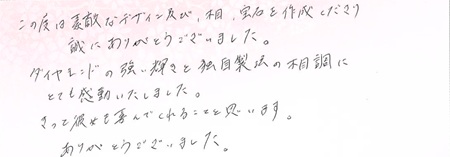 この度は素敵なデザイン及び、相、宝石を作成くださり
誠にありがとうございました。
ダイヤモンドの強い輝きと独自製法の相調に
とても感動いたしました。
きっと彼女も喜んでくれることと思います。
ありがとうございました。